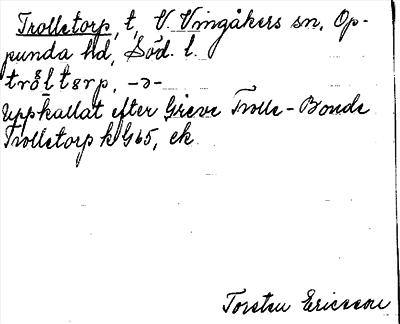 Trolletorp, t, V. Vingåkers sn, Op-
punda hd, Söd. l.
tròltərp, -ə-
Uppkallat efter Greve Trolle-Bonde
Trolletorp k G65, ek
Torsten Ericsson